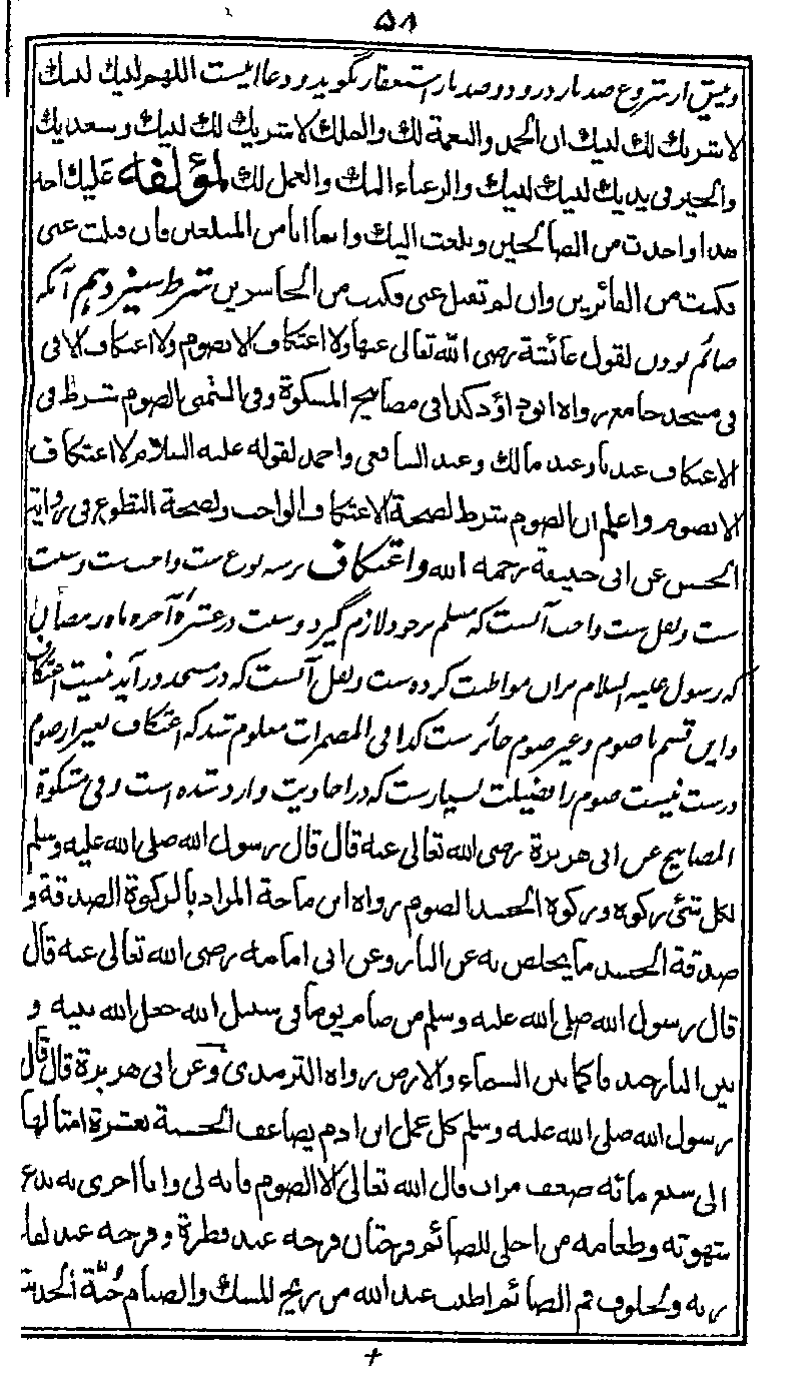 ۵۸
وپیش از شروع صد بار درود و صد بار استغفار بگوید و دعا اینست اللهم لبیك لبیك
لا شریك لك لبیك ان الحمد والنعمة لك والملك لا شریك لك لبیك وسعدیك
والخیر فی یدیك لبیك لبیك والرغباء الیك والعمل لك لمؤلفه علیك
هذا واحدت من الصالحین وبلغت الیك وانها انا من المبلغین فان قبلت عنی
فکنت من الفائزین وان لم تقبل عنی فکنت من الخاسرین شرط سیزدهم آنکه
صائم بودن لقول عائشة رضی الله تعالی عنها ولا اعتکاف الا بصوم ولا اعتکاف الا فی
فی مسجد جامع رواه ابوداؤد کذا فی مصابیح المشکوة وفی الصوم شرط فی
الاعتکاف عندنا وعند مالك وعند الشافعی واحمد لقوله علیه السلام لا اعتکاف
الا بصوم واعلم ان الصوم شرط لصحة الاعتکاف الواجب ولصحة التطوع فی روایة
الحسن عن ابی حنیفة رحمه الله واعتکاف برسه نوع ست واجب ست وسنت
ست ونفل ست واجب آنست که مسلم برخود لازم گیرد وسنت در عشرهٔ آخره ماه رمضان
که رسول علیه السلام بران مواظبت کرده ست ونفل آنست که در مسجد درآید نیت اعتکاف
واین قسم با صوم وغیر صوم جائز ست کذا فی المضمرات معلوم شد که اعتکاف بغیر از صوم
درست نیست صوم را فضیلت بسیار ست که در احادیث وارد شده است وفی مشکوة
المصابیح عن ابی هریرة رضی الله تعالی عنه قال قال رسول الله صلی الله علیه وسلم
لکل شئ زکوة وزکوة الجسد الصوم رواه ابن ماجة المراد بالزکوة الصدقة و
صدقة الجسد ما یخلص به عن النار وعن ابی امامه رضی الله تعالی عنه قال
قال رسول الله صلی الله علیه وسلم من صام یوما فی سبیل الله جعل الله بینه و
بین النار خندقا کما بین السماء والارض رواه الترمذی وعن ابی هریرة قال قال
رسول الله صلی الله علیه وسلم کل عمل ابن ادم یضاعف الحسنة بعشرة امثالها
الی سبع مائه ضعف مرات قال الله تعالی الا الصوم فانه لی وانا اجزی به یدع
شهوته وطعامه من اجلی للصائم فرحتان فرحه عند فطرة وفرحه عند لقاء
ربه ولخلوف فم الصائم اطیب عند الله من ریح المسك والصیام جُنّة الحدیث